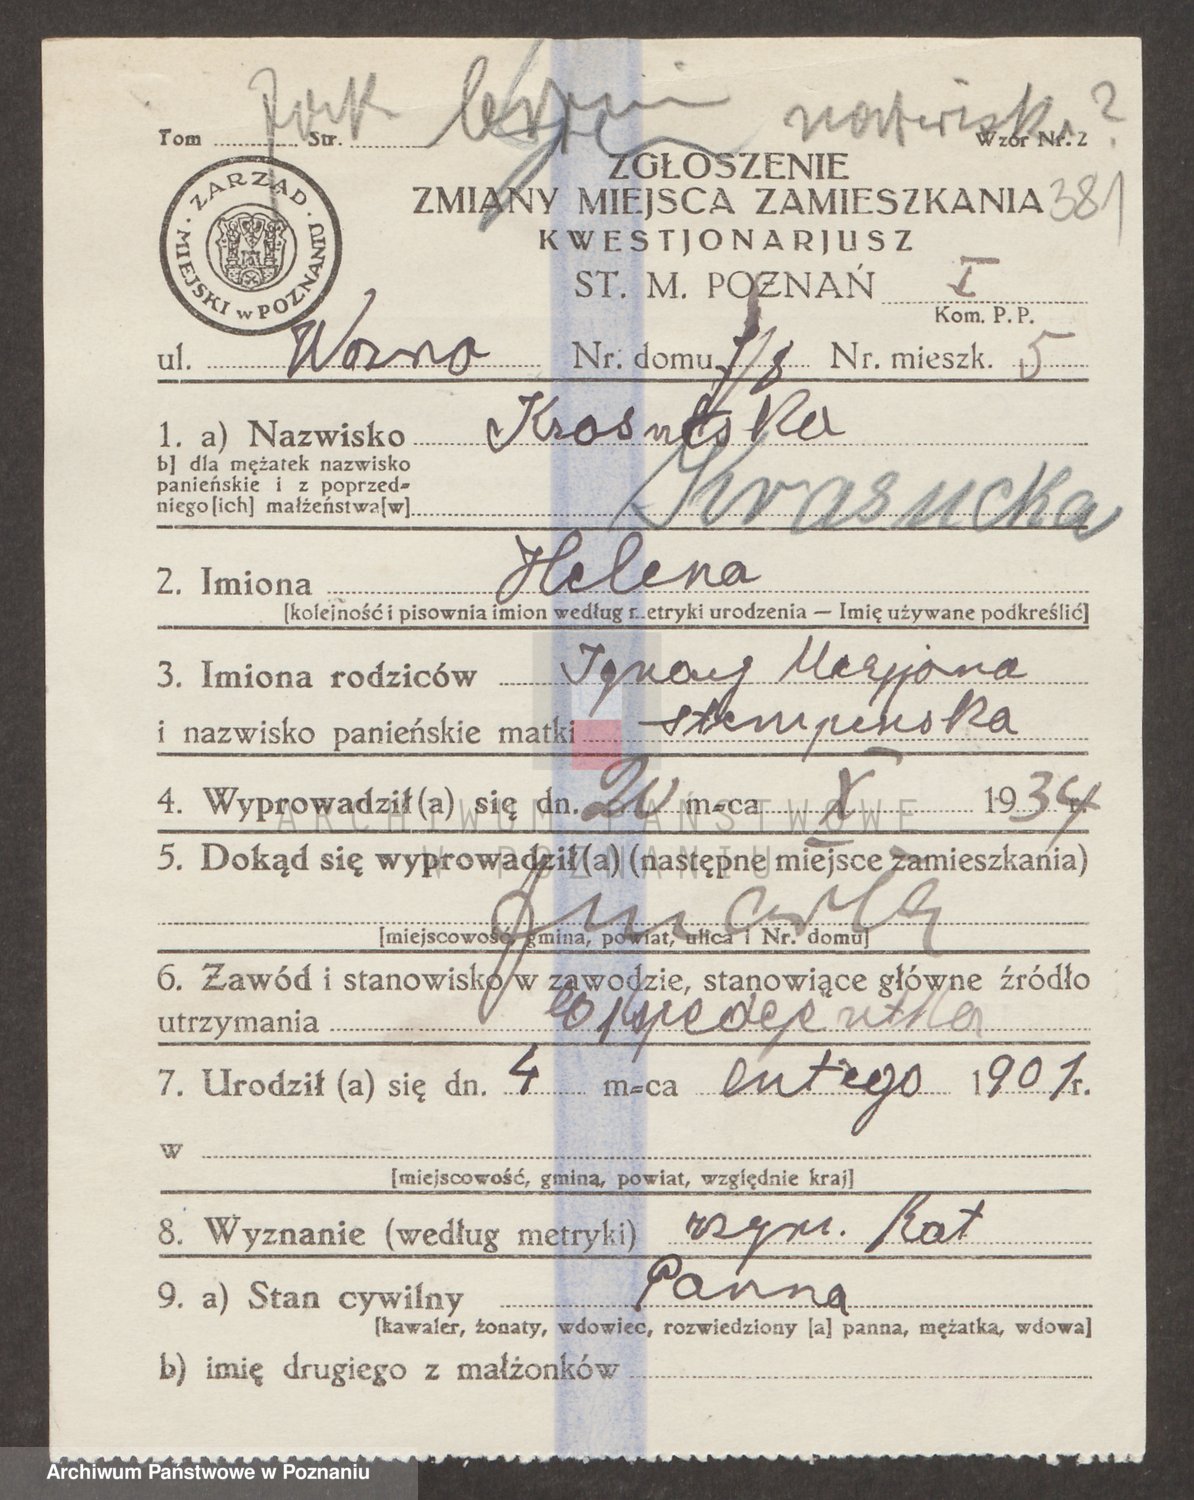 Jak nazwisk.?
Tom ........ Str. ........ Wzór Nr. 2
ZGŁOSZENIE
ZMIANY MIEJSCA ZAMIESZKANIA 381
KWESTJONARJUSZ
ZARZĄD MIEJSKI w POZNANIU
ST. M. POZNAŃ I
Kom. P. P.
ul. Wozna Nr. domu 7/8 Nr. mieszk. 5
1. a) Nazwisko Krosucska
b] dla mężatek nazwisko
panieńskie i z poprzed=
niego[ich] małżeństwa[w] Krasucka
2. Imiona Helena
[kolejność i pisownia imion według metryki urodzenia — Imię używane podkreślić]
3. Imiona rodziców Ignacy Marjona
i nazwisko panieńskie matki stempinska
4. Wyprowadził(a) się dn. 20 m=ca X 1934 r.
5. Dokąd się wyprowadził(a) (następne miejsce zamieszkania)
[miejscowość, gmina, powiat, ulica i Nr. domu]
6. Zawód i stanowisko w zawodzie, stanowiące główne źródło
utrzymania ekspedjentka
7. Urodził (a) się dn. 4 m=ca lutego 1901 r.
w
[miejscowość, gmina, powiat, względnie kraj]
8. Wyznanie (według metryki) rzym. Kat
9. a) Stan cywilny Panna
[kawaler, żonaty, wdowiec, rozwiedziony [a] panna, mężatka, wdowa]
b) imię drugiego z małżonków
ARCHIWUM PAŃSTWOWE
W POZNANIU
Archiwum Państwowe w Poznaniu